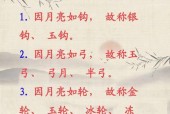 1. 因月亮如钩， 故称银
钩、 玉钩。
2. 因月亮如弓， 故称玉
弓、 弓月、 半弓。
3. 因月亮如轮， 故称金
轮、 玉轮、 冰轮、 冻